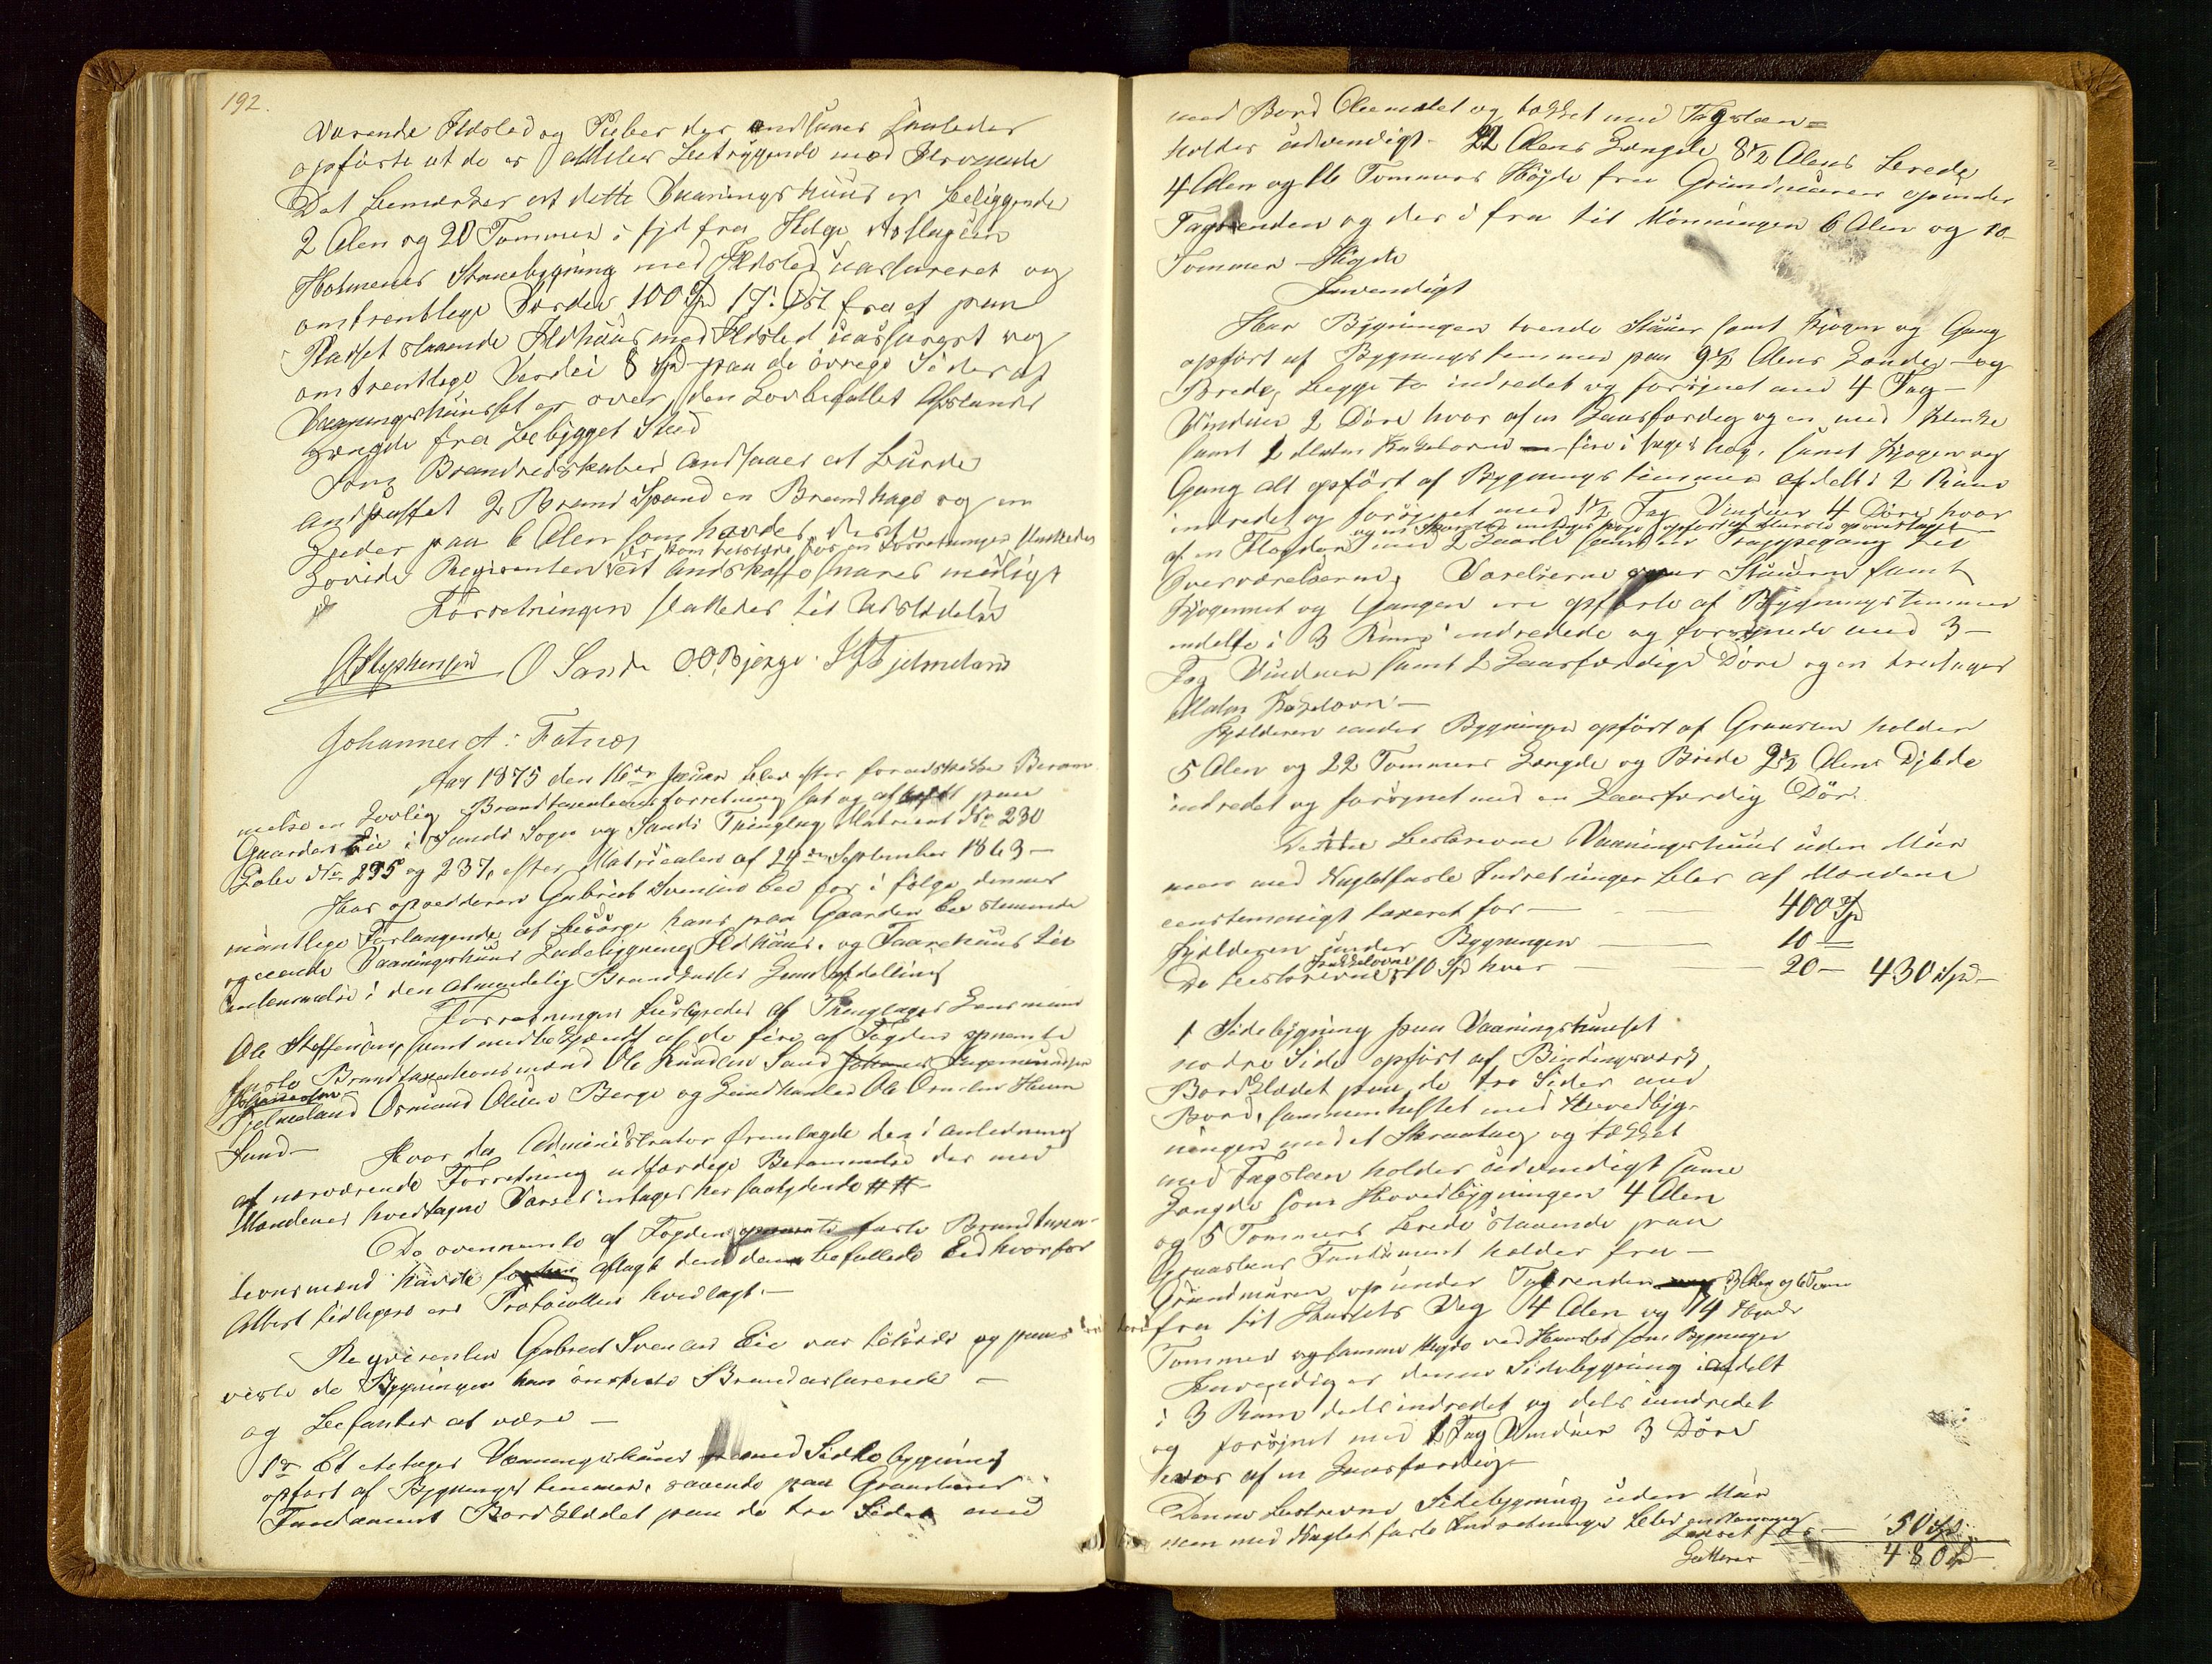 192.
værende Ildsted og Pieber der andsaaes saaledes
opførte at de er aldeles betryggende mod Ildsvaade
Det bemærkes at dette Vaaningshuus er beliggende
2 Alen og 20 Tommer i Syd fra Helge Aslagsen
Holmenes Stuebygning med Ildsted uasureret og
omtrentlige Værdie 100 Spd 17. Øst fra et paa
Pladset staaende Ildhuus med Ildsted uassureret og
omtrentlige Verdie 8 Spd paa de øvrige Sider af
Vaaningshuuset er over den Lovbefallet Afstands
Længde fra bebygget Sted
Som Brandredskaber andsaaes at burde
andskaffet 2 Brand Spand en Brandhage og en
paa 6 Alen som havdes, desto
Reqvirenten at andskaffe snares muligt
Forretningen sluttedes til Udstedelse
O Stephensen O Sande O O Bjerge
Johannes A: Fatnes
Aar 1875 den 16de Januar blev efter forudskikke Beram
melse en Lovlig Brandtaxationsforretning sat og afholdt paa
Gaarden Eie i Sands Sogn og Sands Thinglag Matricul No 230
Løbe No 235 og 237, efter Matriculen af 24de September 1863 —
Har opsedderen Gabriel Svensen Eie for i følge dennes
mundtlige Forlangende at besørge hans paa Gaarden Eie staaende
og eiende Vaaningshuus Ladebygning Ildhuus, og Faarehuus til
Indlemmelse i den almindelig Brandkasses Land afdelling
Forretningen bestyredes af Thinglagets Lensmand
Ole Steffensen, samt medbekjendt af de fire af Fogden opnevnte
faste Brandtaxationsmænd Ole Knudsen Sand Johannes Ingemundsen
Fjelmeland Osmund Olsen Berge og Landhandler Ole Osmundsen
Sand —
Hvor da Administrator fremlagde den i anledning
af nærværende Forretning udfærdige Berammelse der med
Mændenes hvedtagne Varsel indtages her saalydende ##
De ovennevnte af Fogden opnevnte faste Brandtaxa-
tionsmænd havde forhen aflagt den dem befallede Eed hvorfor
Attest tidligere er Protocollen hvedlagt. —
Reqvirenten Gabriel Svensen Eie var tilstede og paa
viste de Bygninger han ønskede Brandassurerede —
og befantes at være —
1o Et etetages Vaaningshuus med Sidebygning
opført af Bygningstømmer, staaende paa Graasteens
Fundament Bordklædet paa de tre Sider med
med Bord Oliemalet og tækket med Tagsteen =
holder udvendigt 22 Alens Længde 8½ Alens Brede
4 Alen og 16 Tommers Høyde fra Grundmuren opunder
Tagrenden og der i fra til Mønningen 6 Alen og 10
Tommer Høyde
Invendigt
Har Bygningen tvende Stuuer samt Kjøgen og Gang
opført af Bygningstømmer paa 9½ Alens Længde og
Brede, begge to indredet og forsynet med 4 Fag
Vinduer 2 Døre hvor af en Laasfærdig og en med Klinke
samt 1 Malm Kakelovn
Gang alt opført af Bygningstømmer afdelt i 2 Rum
indredet og forsynet med 1½ Fag Vinduer 4 Døre hvor
af en Fløydør med 2 Laase samt en Trappegang til
Overværelserne, Værelserne over Stuuerne samt
Kjøgennet og Gangen ere opførte af Bygningstømmer
inddelte i 3 Rum indredede og forsynede med 3 —
Fag Vinduer samt 2 Laasfærdige Døre og en treetages
Malm Kakelovn —
Kjælderen under Bygningen opført af Graasten holder
5 Alen og 22 Tommers Længde og Brede 2½ Alens Djbde
indredet og forsynet med en Laasfærdig Dør.
Dette beskrevne Vaaningshuus uden Mur
men med Nagletfaste Indretninger blev af Mændene
eenstemmigt taxeret for — 400 Spd
Kjælderen under Bygningen — 10 —
De beskrevne Kakelovne, 10 Spd hver — 20 — 430 Spd —
1 Sidebygning paa Vaaningshuuset
nordre Side opført af Bindingsværk
Bordklædet paa de tre Sider med
Bord, sammenheftet med Hovedbyg-
ningen med et Skraatag og tækket
med Tagsteen holder udvendigt samme
Længde som Hovedbygningen 4 Alen
og 5 Tommers Brede staaende paa
Graasteens Fundament holder fra —
Grundmuren opunder Tagrenden 3 Alen og 6 Tom
fra til Huusets Veg 4 Alen og 14
Tommer og samme Høyde ved Huuset som Bygningen
Invendig er denne Sidebygning inddelt
i 3 Rum dels indredet og dels uindredet
og forsynet med 1 Fag Vinduer 3 Døre
hvor af en Laasfærdig —
Denne beskrevne Sidebygning uden Mur
men med Nagletfaste Indretninger blev eenstemmig
taxeret for — 50 Spd
Latteres — 480 Spd —